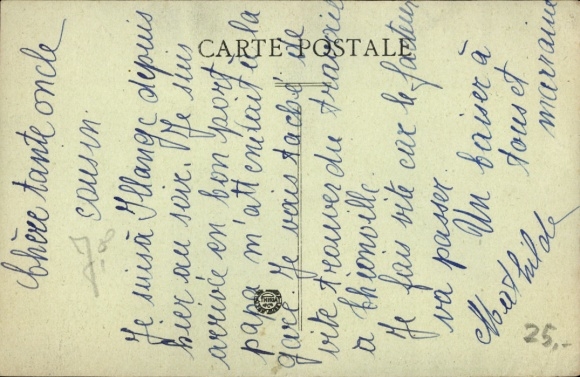 CARTE POSTALE
Chère tante oncle
cousin.
Je suis à Illange depuis
hier au soir. Je suis
arrivée en bon port,
papa m'attendait à la
gare. Je vais tacher de
vite trouver du travail
à Thionville.
Je fais vite car le facteur
va passer
Un baiser à
tous et marraine
Mathilde
25,-